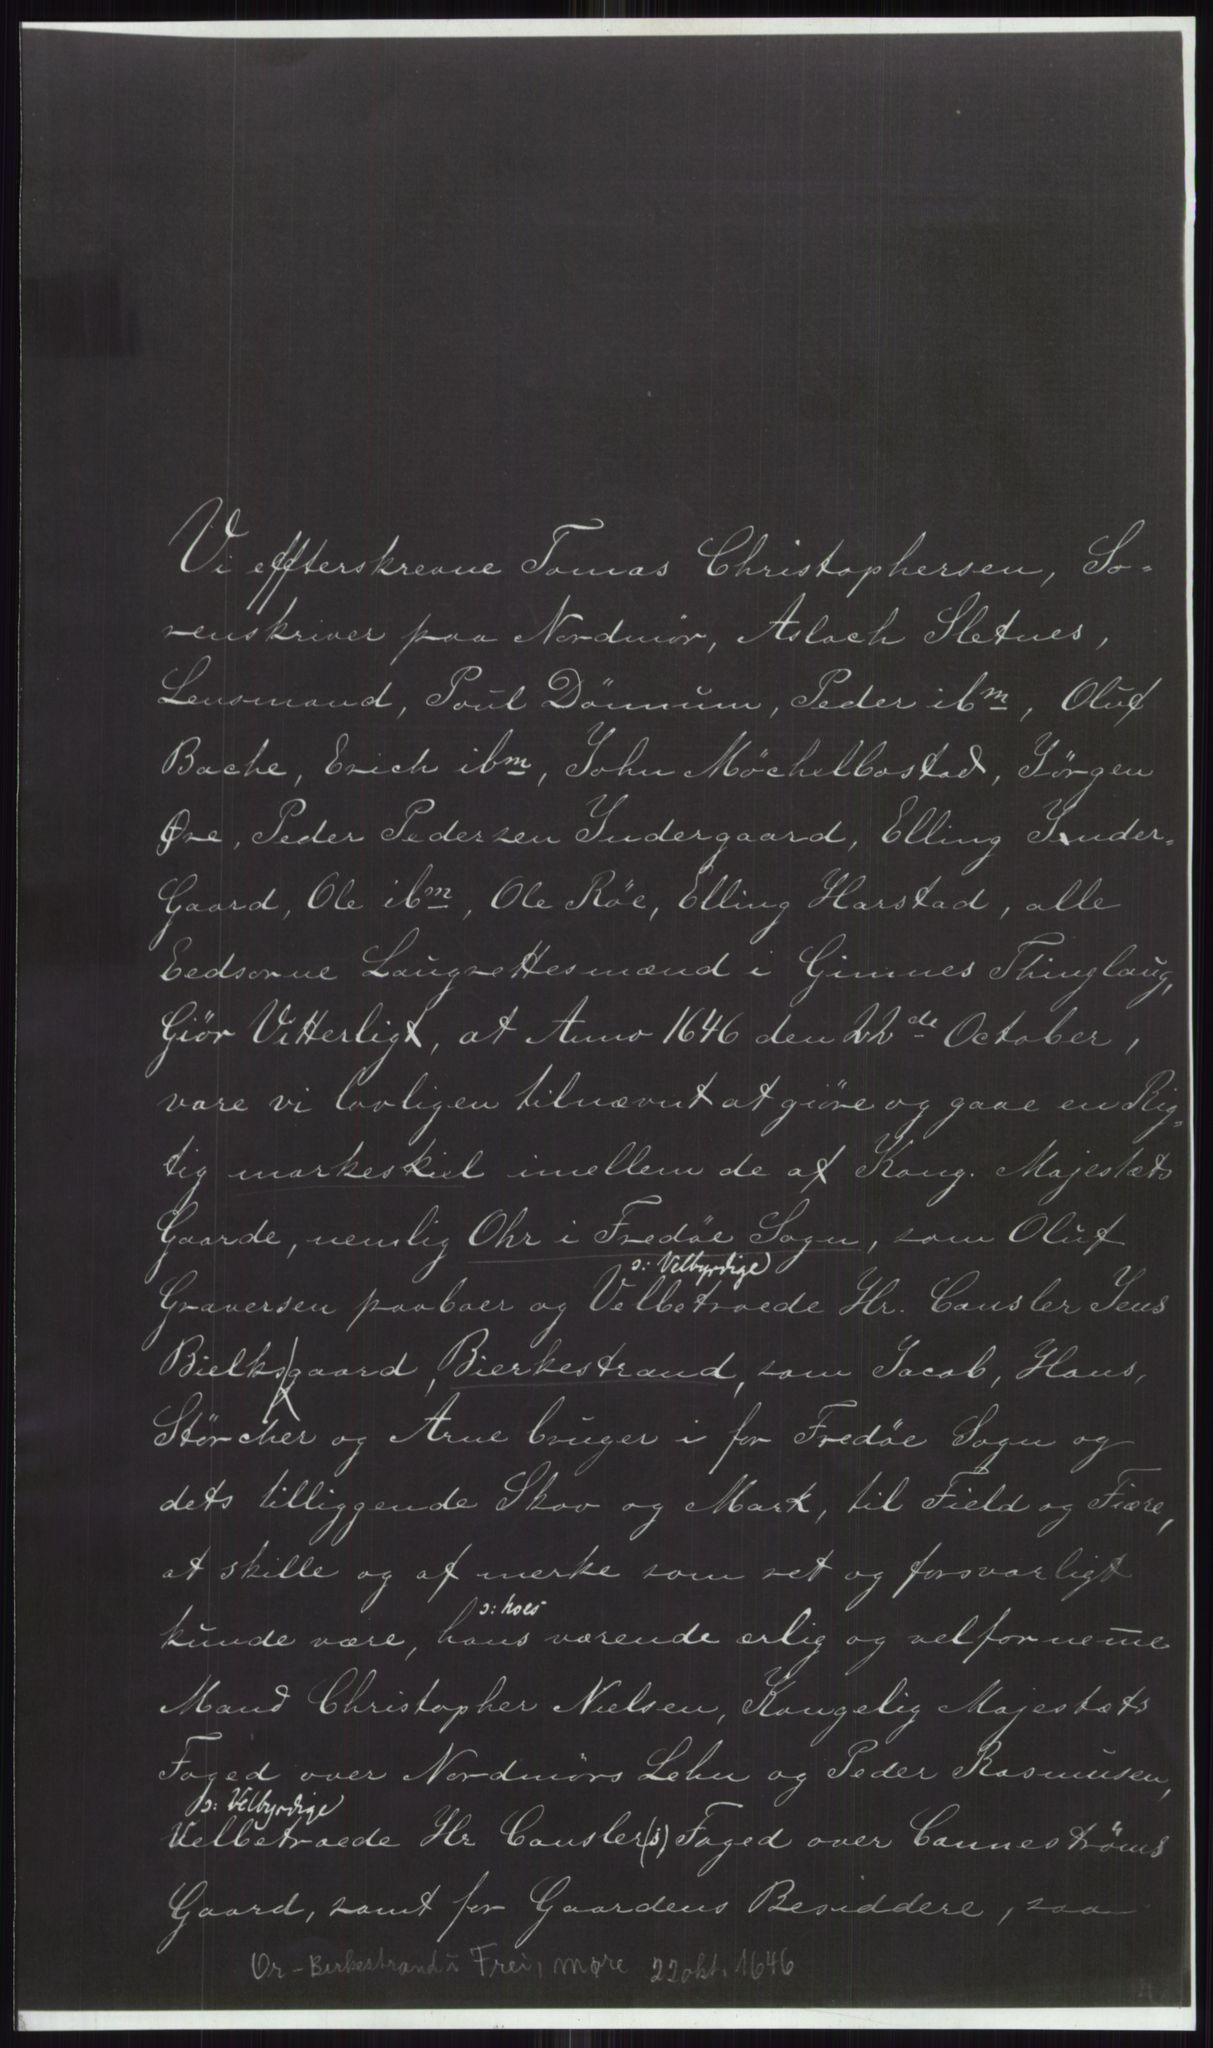 Vi effterskrevne Tomas Christophersen, So-
renskriver paa Nordmör, Aslach Sletnes,
Lensmand, Poul Dönnum, Peder ibm, Oluf
Bache, Erich ibm, John Möchelbostad, Jörgen
Øre, Peder Pedersen Indergaard, Elling Inder-
Gaard, Ole ibm, Ole Röe, Elling Harstad, alle
Eedsorne Laugrettesmænd i Gimnes Thinglaug,
Giör Vitterligt, at Anno 1646 den 22de October,
vare vi lovligen tilnævnt at giöre og gaae en Rig-
tig markeskiel imellem de af Kong. Majestæts
Gaarde, nemlig Ohr i Fredöe Sogn, som Oluf
ɔ: Velbyrdige
Graversen paaboer og Velbetroede Hr. Cansler Jens
Bielks gaard, Bierkestrand, som Jacob, Hans,
Störcher og Arne bruger i for Fredöe Sogn og
dets tilliggende Skov og Mark, til Field og Fiære,
at skille og af merke som ret og forsvarligt
ɔ: hoes
kunde være, hans værende ærlig og velforneme
Mand Christopher Nielsen, Kongelig Majestæts
Foged over Nordmörs Lehn og Peder Rasmusen,
ɔ: Velbyrdige
Velbetroede Hr Cansler(s) Foged over Canneströms
Gaard, samt for Gaardens Besiddere, saa
Or - Berkestrand i Frei, Møre 22 okt. 1646